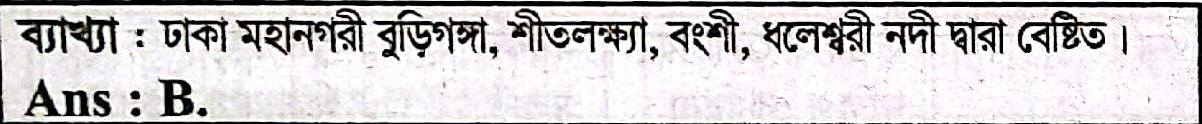 ব্যাখ্যা : ঢাকা মহানগরী বুড়িগঙ্গা, শীতলক্ষ্যা, বংশী, ধলেশ্বরী নদী দ্বারা বেষ্টিত।
Ans : B.